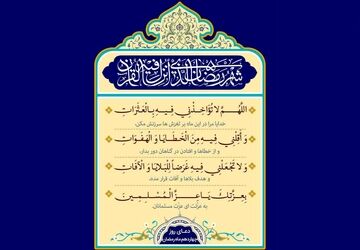 شهر رمضان الذی انزل فیه القرآن
اللَّهُمَّ لاَ تُؤَاخِذْنِي فِيهِ بِالْعَثَرَاتِ
خدایا مرا در این ماه بر لغزش ها سرزنش مکن،
وَ أَقِلْنِي فِيهِ مِنَ الْخَطَايَا وَ الْهَفَوَاتِ
و از خطاها و افتادن در گناهان دور بدار،
وَ لاَ تَجْعَلْنِي فِيهِ غَرَضاً لِلْبَلاَيَا وَ الْآفَاتِ
و هدف بلاها و آفات قرار مده،
بِعِزَّتِكَ يَا عِزَّ الْمُسْلِمِينَ
به عزتت ای عزت مسلمانان.
دعای روز
چهاردهم ماه رمضان